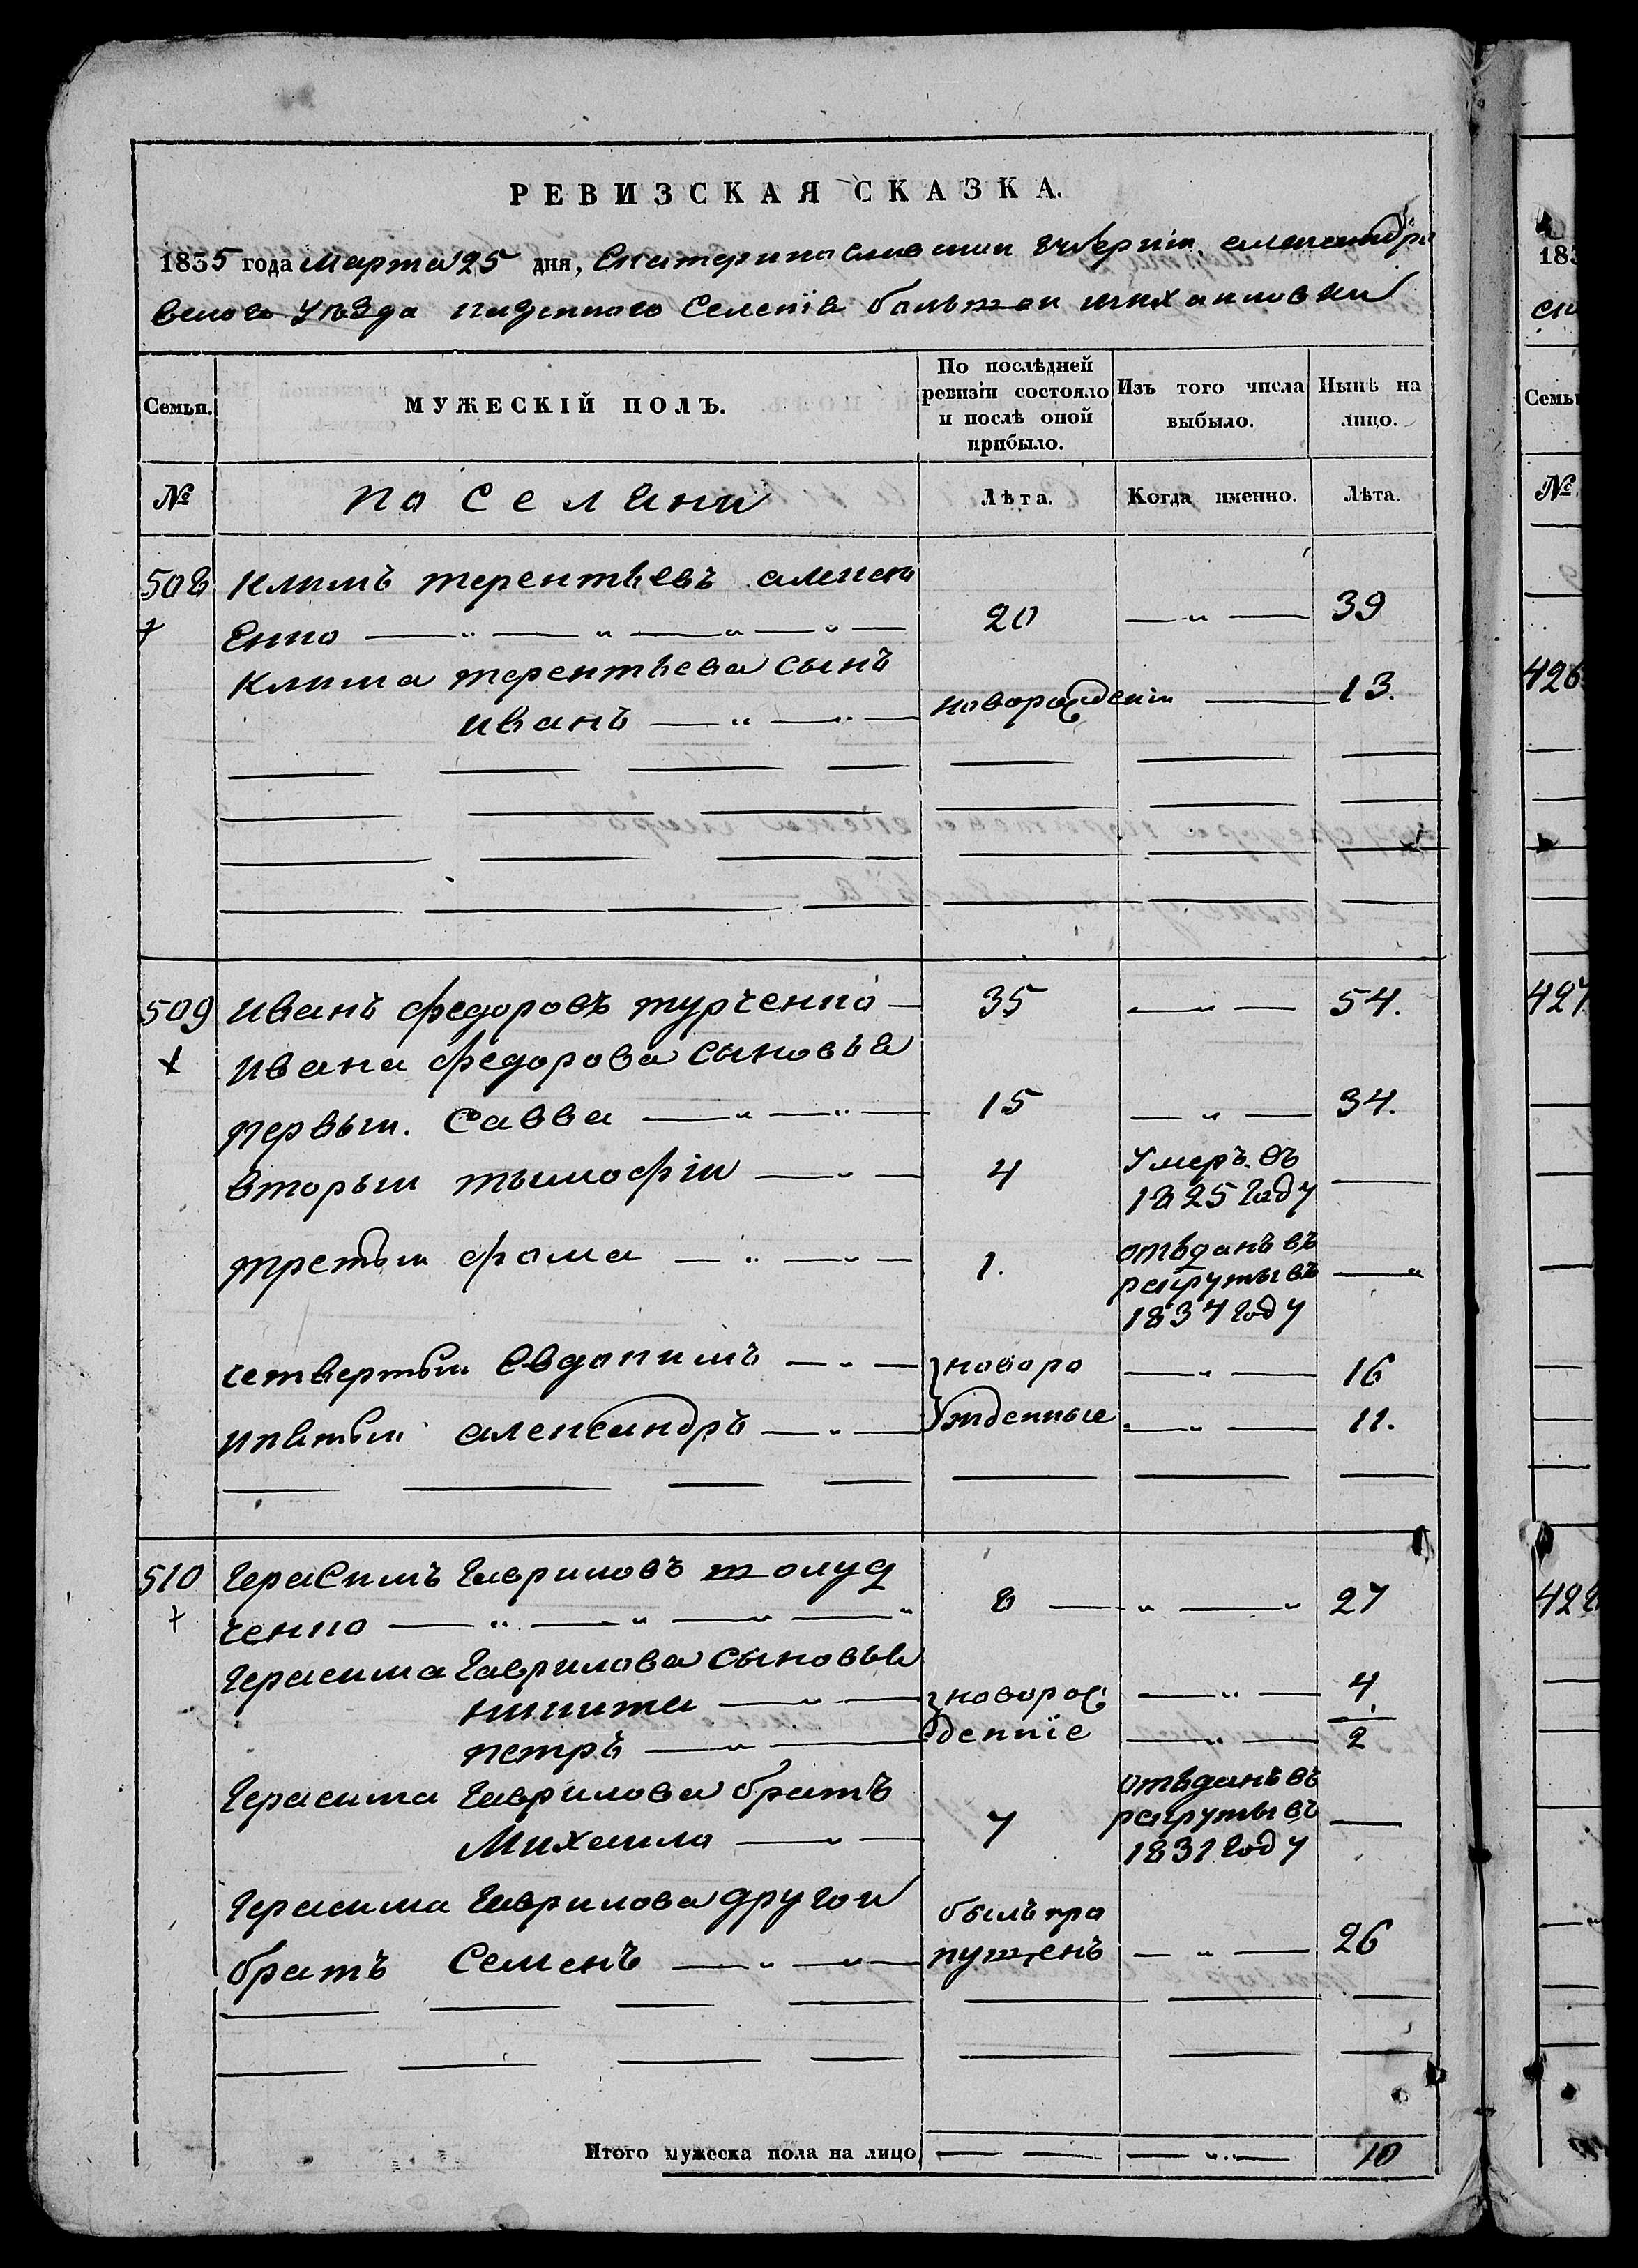 РЕВИЗСКАЯ СКАЗКА.
1835 года Марта 25 дня, Екатеринославской губерніи, александро
вского уѣзда казенного Селенія большой михайловки
Семьи. МУЖЕСКІЙ ПОЛЪ. По послѣдней ревизіи состояло и послѣ оной прибыло. Изъ того числа выбыло. Нынѣ на лицо.
№ поселяни Лѣта. Когда именно. Лѣта.
508 климъ терентьевъ алекс
Енко 20 39
клима терентьева сынъ
иванъ новорожденій 13.
509 иванъ федоровъ турченко 35 54.
ивана федорова сыновья
первый. Савва 15 34.
вторый тымофій 4 Умеръ въ 1825 году
третый фома 1. отъданъ въ рекруты въ 1834 году
четвертый Евдокимъ новоро 16
пятый александръ жденные 11.
510 Герасимъ Гавриловъ
ченко 8 27
Герасима Гаврилова сыновья
никита новорож 4
петръ денніе 2
Герасима Гаврилова братъ
Михаило 7 отъданъ въ рекруты въ 1831 году
Герасима Гаврилова другой былъ про
братъ Семенъ пущенъ 26
Итого мужеска пола на лицо 10
183
Семьи
№
426
427
428